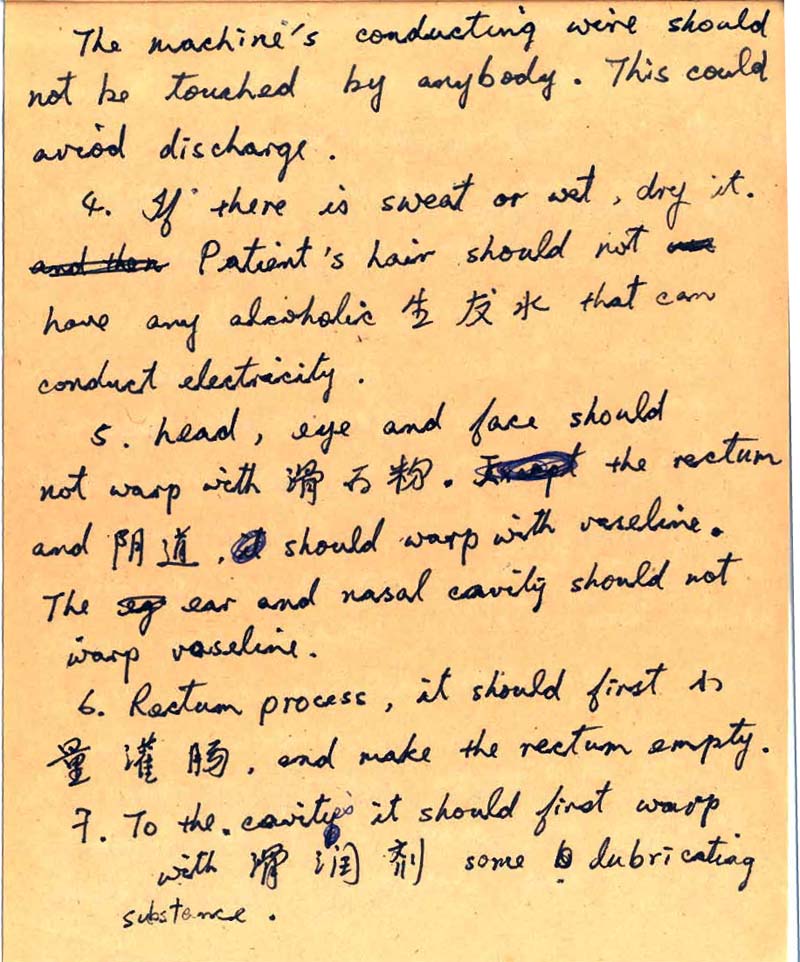 The machine's conducting wire should
not be touched by anybody. This could
aviod discharge.
4. If there is sweat or wet, dry it.
and then Patient's hair should not
have any alcoholic 生发水 that can
conduct electricity.
5. head, eye and face should
not warp with 滑石粉. Except the rectum
and 阴道, should warp with vaseline.
The ear and nasal cavity should not
warp vaseline.
6. Rectum process, it should first 小
量灌肠, and make the rectum empty.
7. To the. cavity's it should first warp
with 滑润剂 some lubricating
substance.